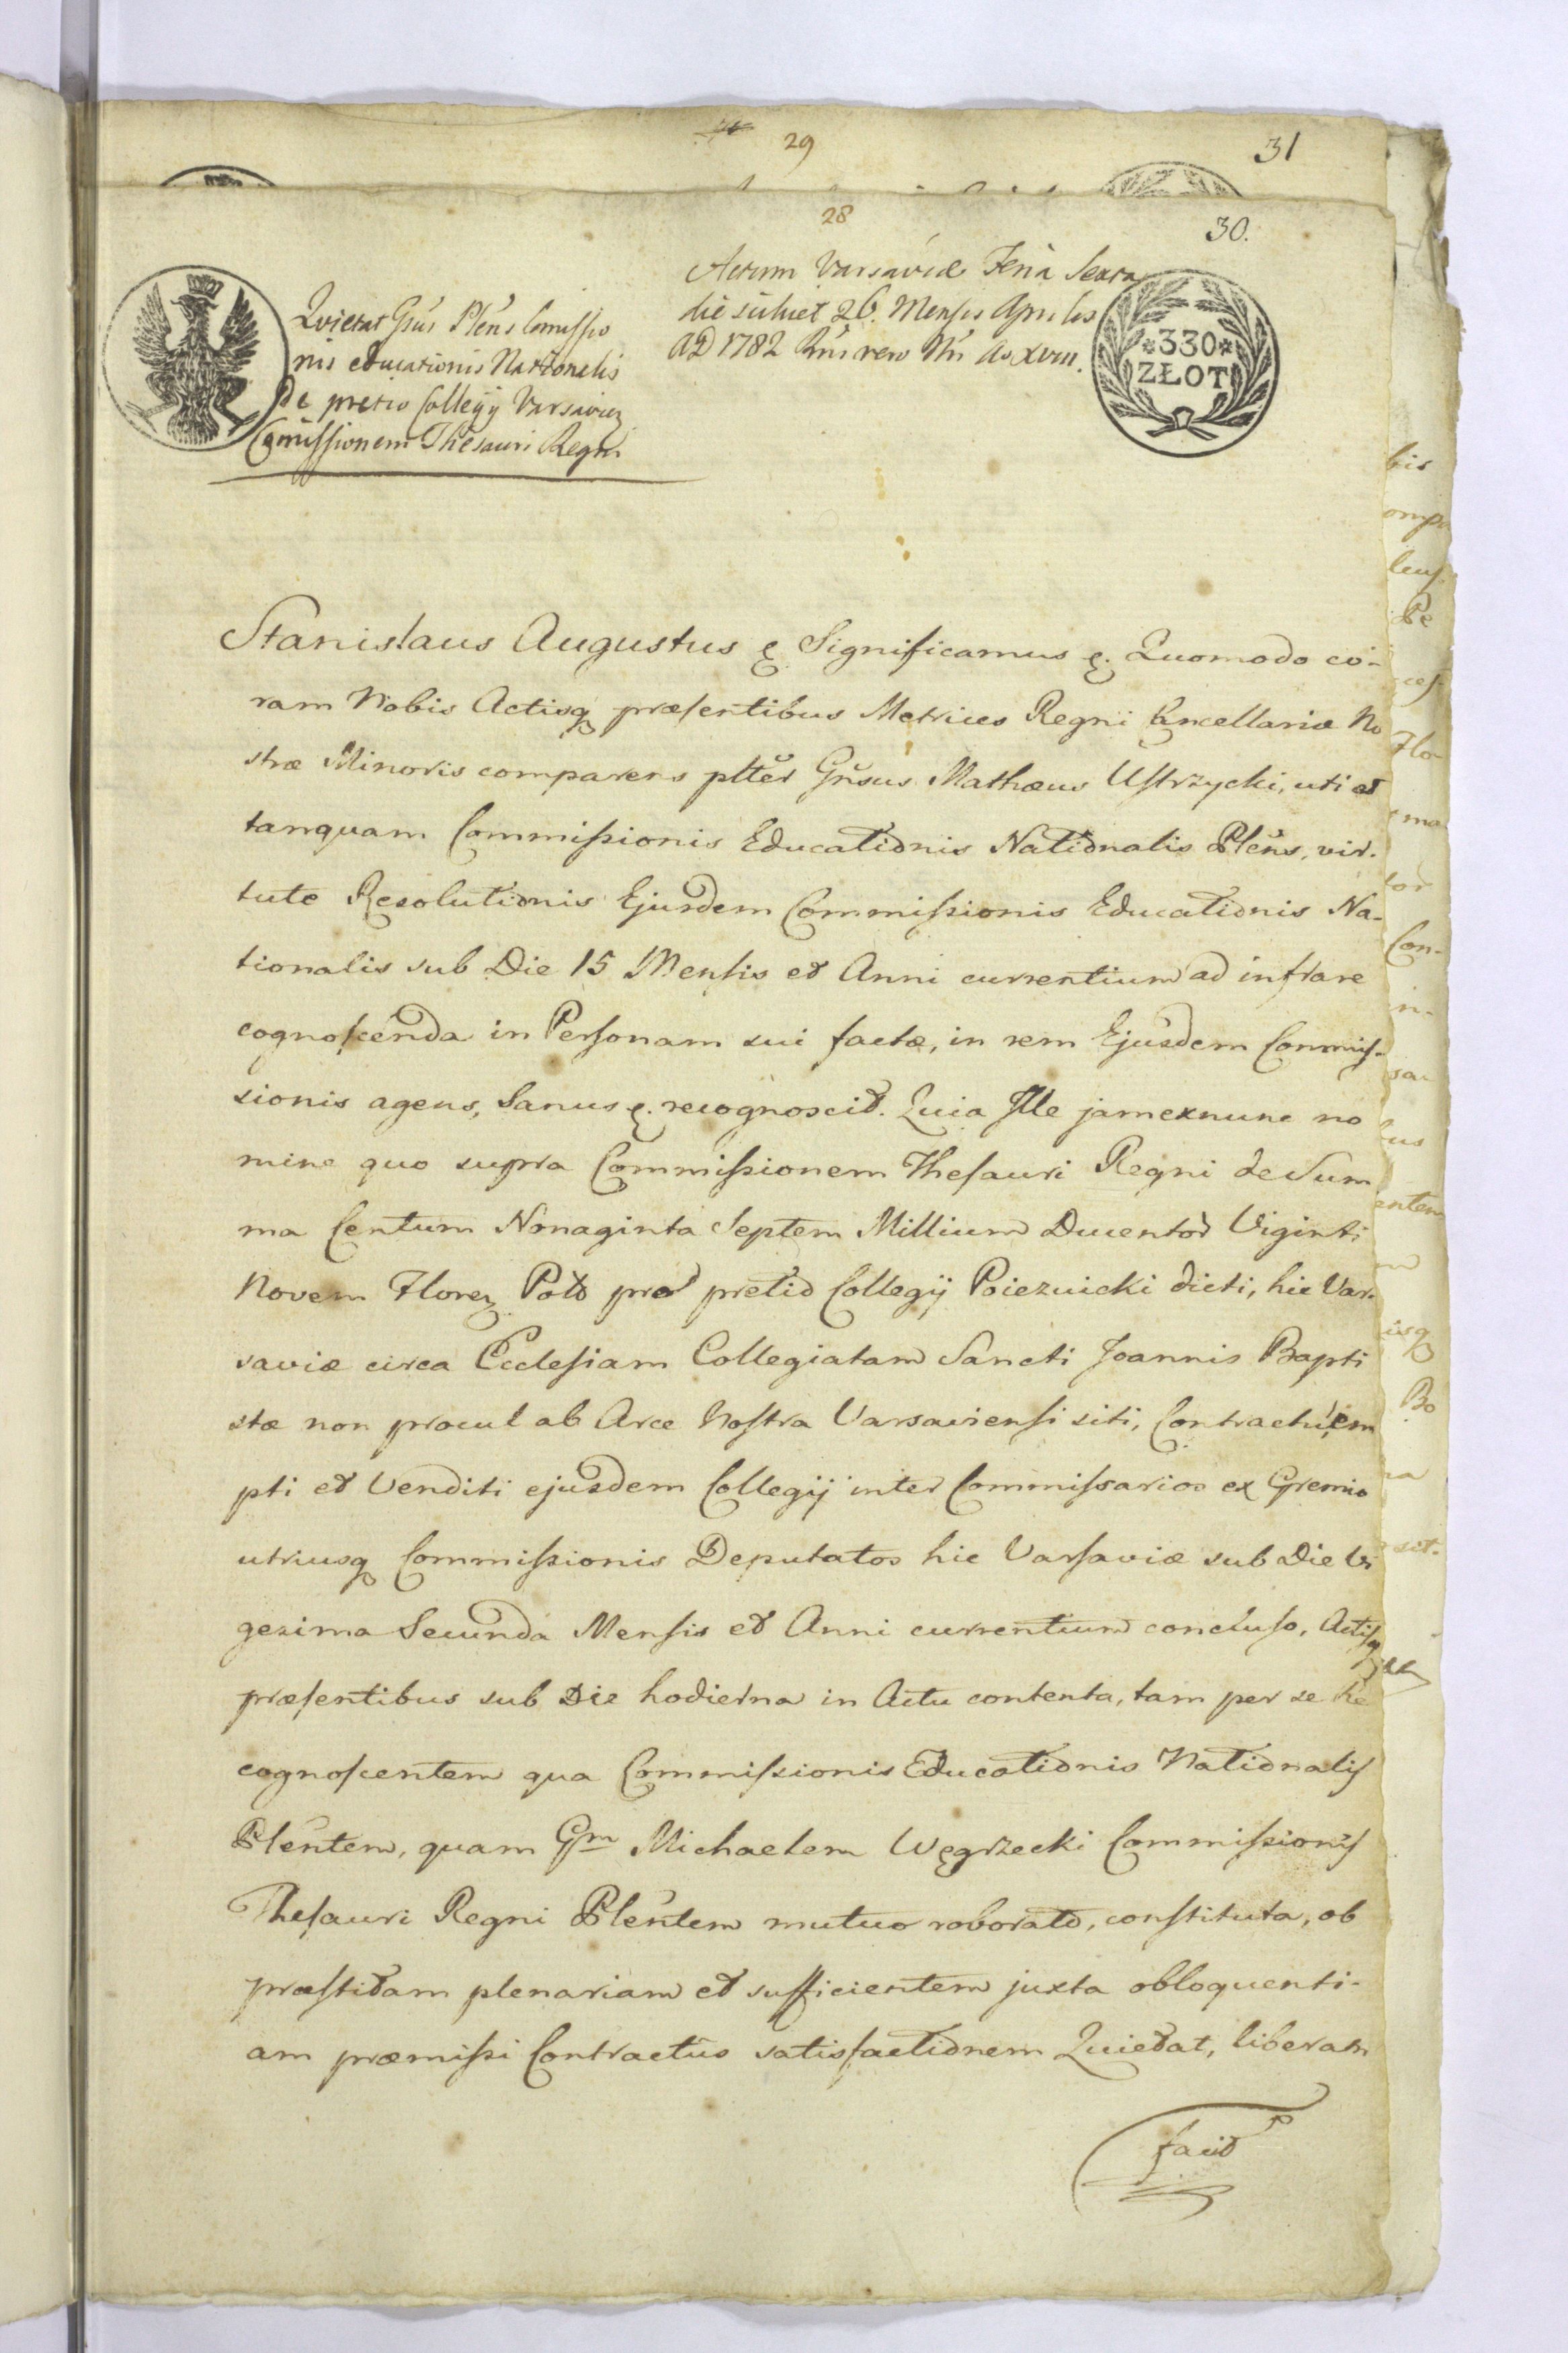 29
31
28
30.
Quietat Gsus Plens Comissio
nis educationis Nationalis
De pretio Collegij Varsavien
Comissionem Thesauri Regni
Actum Varsaviæ Feria Sexta
die scilicet 26. Mensis Aprilis
AD 1782 Rni vero Nri Ao XVIII.
*330*
ZŁOT
Stanislaus Augustus ę Significamus ę. Quomodo co-
ram Nobis Actisq præsentibus Metrices Regni Cancellariæ No
stræ Minoris comparens plter Gnsus Mathæus Ustrzycki, uti et
tanquam Commissionis Educationis Nationalis Plens, vir-
tute Resolutionis Ejusdem Commissionis Educationis Na-
tionalis sub Die 15 Mensis et Anni currentium ad infrare
cognoscenda in Personam sui factæ, in rem Ejusdem Commis-
sionis agens, Sanus ę. recognoscit. Quia Ille jamexnunc no
mine quo supra Commissionem Thesauri Regni de Sum
ma Centum Nonaginta Septem Millium Ducentor Viginti
Novem Floren Pol pro pretio Collegij Poiezuicki dicti, hic Var-
saviæ circa Ecclesiam Collegiatam Sancti Joannis Bapti
stæ non procul ab Arce Nostra Varsaviensi siti, Contractu em
pti et Venditi ejusdem Collegij inter Commissarios ex Gremio
utriusq Commissionis Deputatos hic Varsaviæ sub Die Vi
gezima Secunda Mensis et Anni currentium concluso, Actisq
præsentibus sub Die hodierna in Actu contenta, tam per se Re
cognoscentem qua Commissionis Educationis Nationalis
Plentem, quam Gm Michaelem Węgrzecki Commissionis
Thesauri Regni Plentem mutuo roborato, constituta, ob
præstitam plenariam et sufficientem juxta obloquenti-
am præmissi Contractus satisfactionem Quietat, liberatq
facit